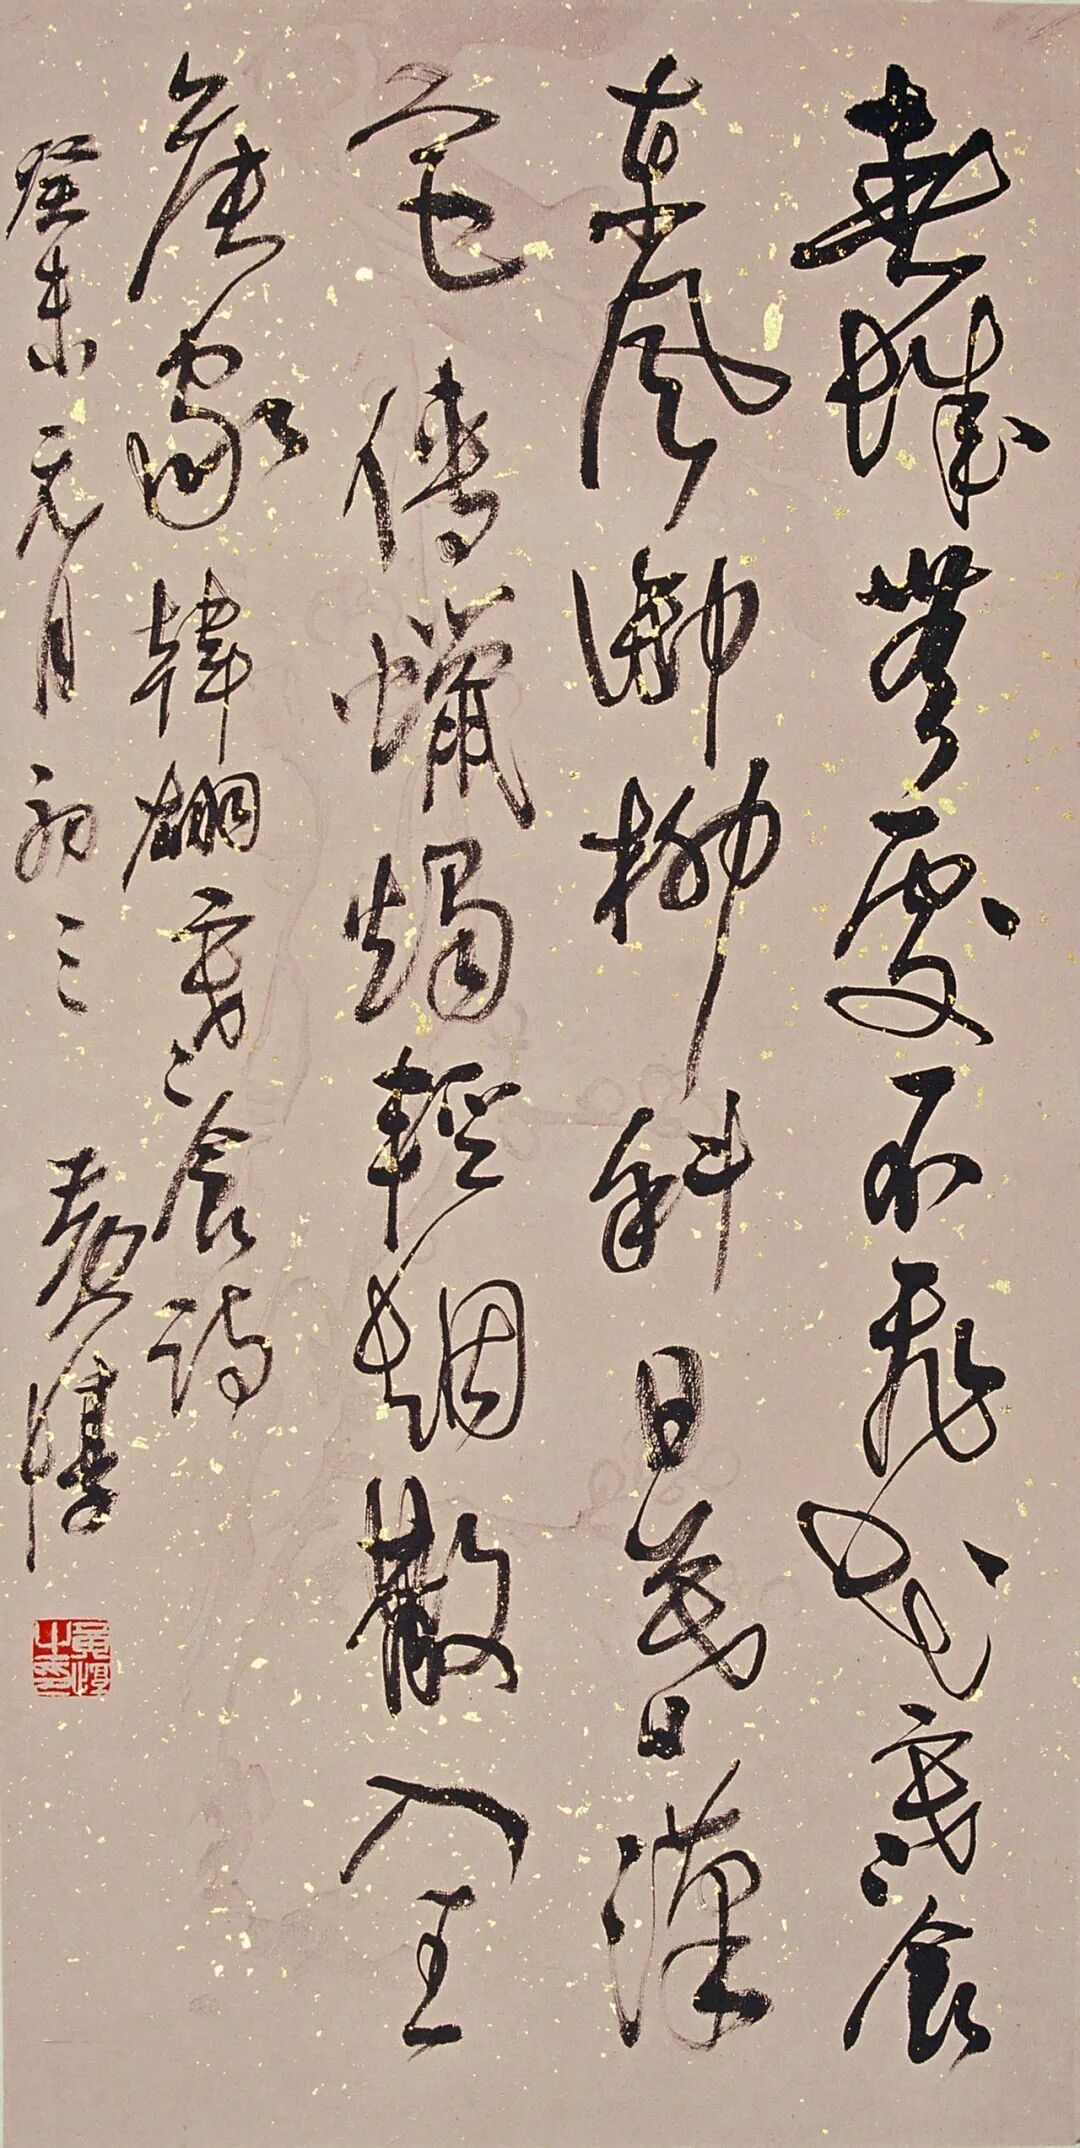 春城無處不飛花寒食
東風御柳斜日暮漢
宮傳蠟燭輕烟散入五
侯家 韓翃寒食詩
癸未元月初三 黃惇
黃惇之印